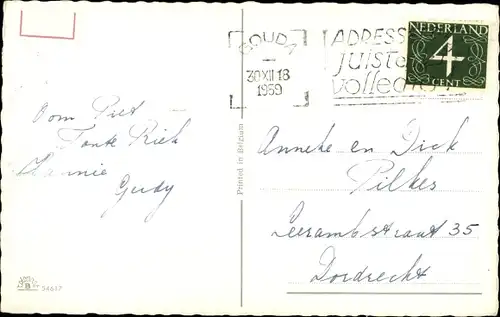 GOUDA
30 XII 18
1959
ADRESS
JUIST
VOLLED
NEDERLAND
4
CENT
Oom Piet
Tante Rieh
Hannie
Gerdy
Printed in Belgium
Anneke en Dick
Pilkes
Leerambstraat 35
Dordrecht
B
54617